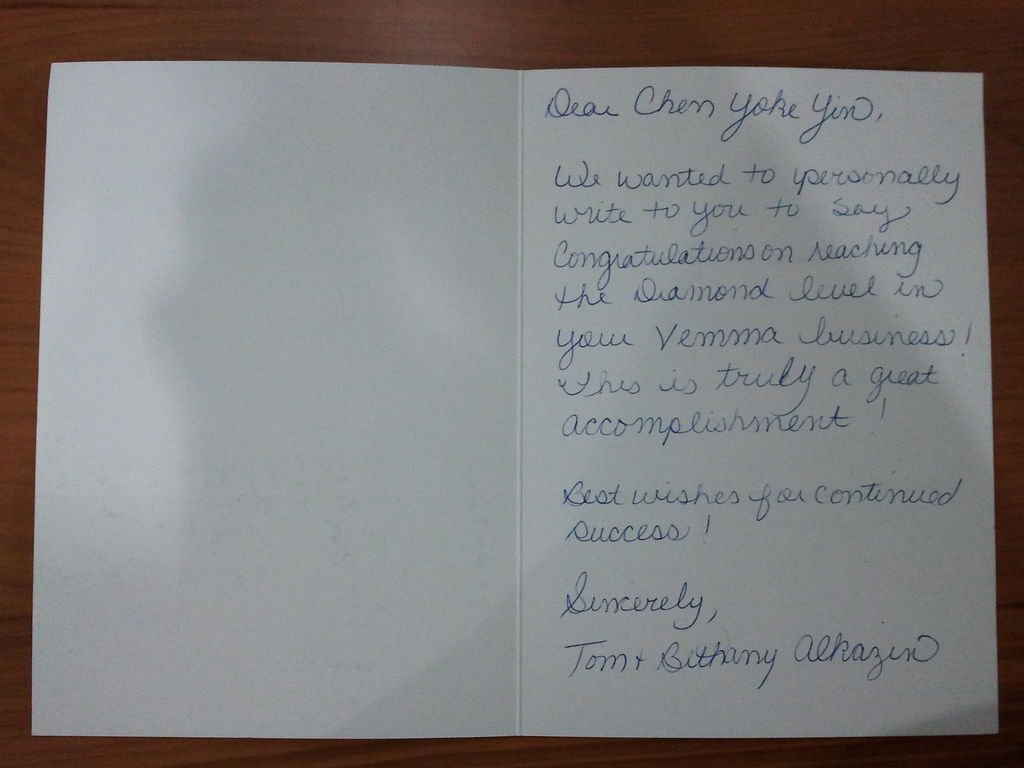 Dear Chen Yoke Yin,
We wanted to personally
write to you to say
Congratulations on reaching
the Diamond level in
your Vemma business!
This is truly a great
accomplishment!
Best wishes for continued
success!
Sincerely,
Tom + Bethany Alkazin